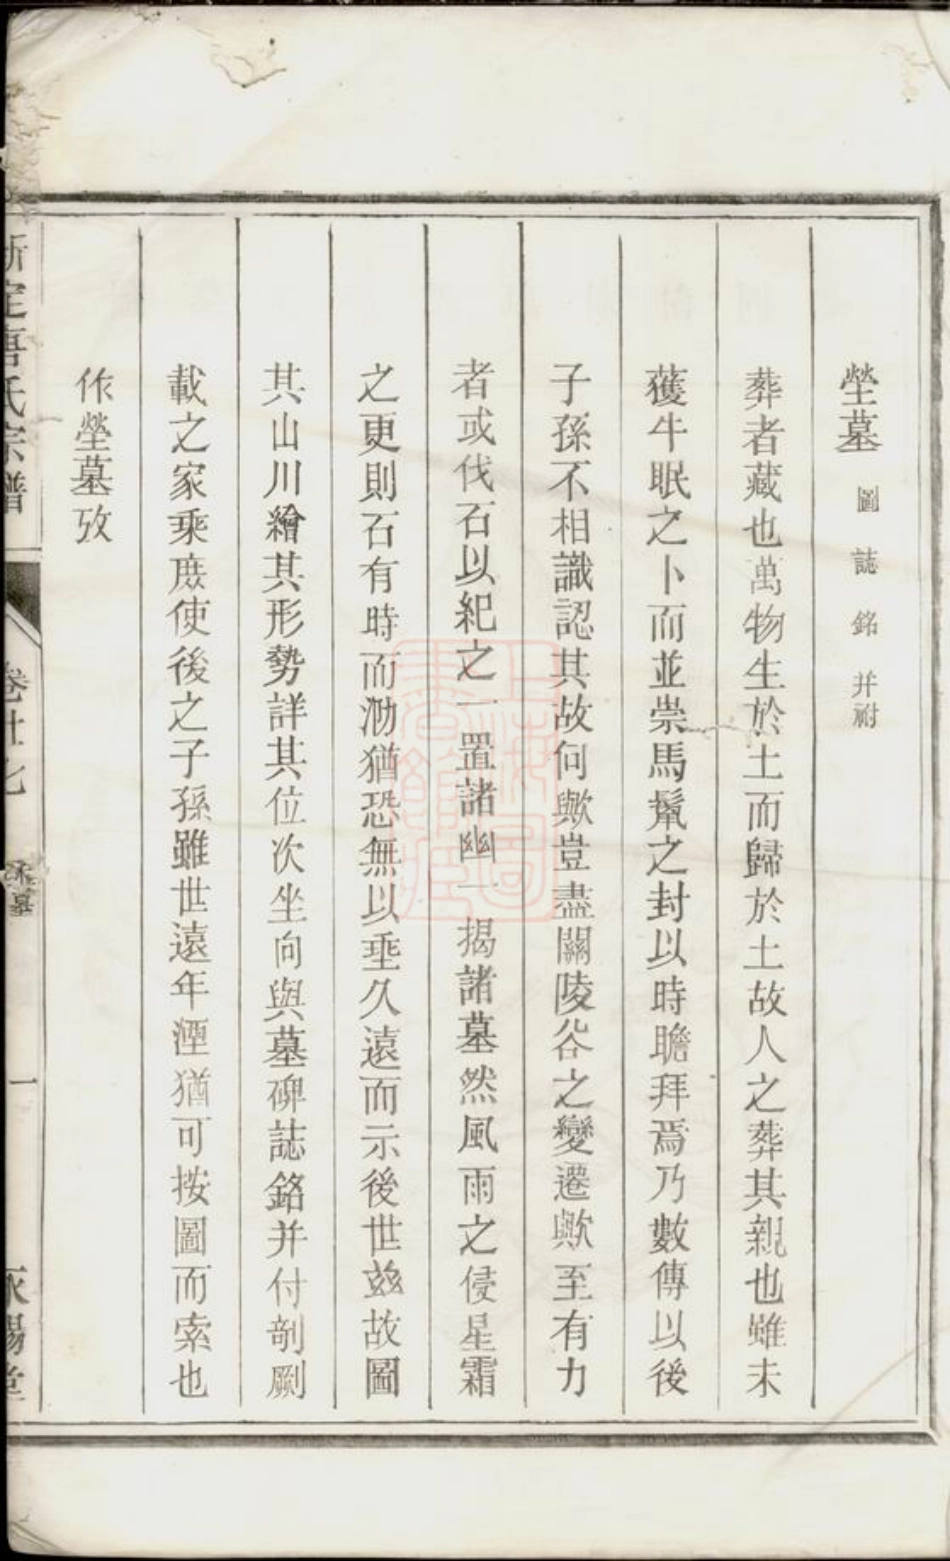 塋墓 圖誌銘并祔
葬者藏也萬物生於土而歸於土故人之葬其親也雖未
獲牛眠之卜而並崇馬鬣之封以時瞻拜焉乃數傳以後
子孫不相識認其故何歟豈盡關陵谷之變遷歟至有力
者或伐石以紀之一置諸幽一揭諸墓然風雨之侵星霜
之更則石有時而泐猶恐無以垂久遠而示後世玆故圖
其山川繪其形勢詳其位次坐向與墓碑誌銘并付剞劂
載之家乘庶使後之子孫雖世遠年湮猶可按圖而索也
作塋墓攷
新定唐氏宗譜 卷廿七 墓 一 永錫堂
上海圖書館藏